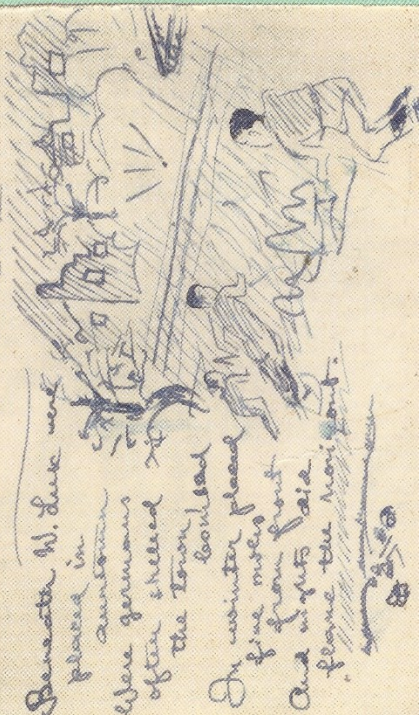 Beneath W. Luk were
placed in
auntonin
Were germans
often shelled
the town
bombed
In winter placed
five miles
from front
And nights did
flame the horizont.